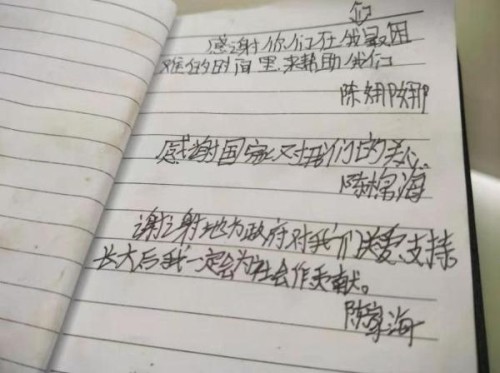 们
感谢你们在我最困
难的时间里来帮助我们
陈妍妍
感谢国家对我们的关心
陈棉海
谢谢地方政府对我们关爱支持。
长大后我一定会为社会作贡献。
陈家海